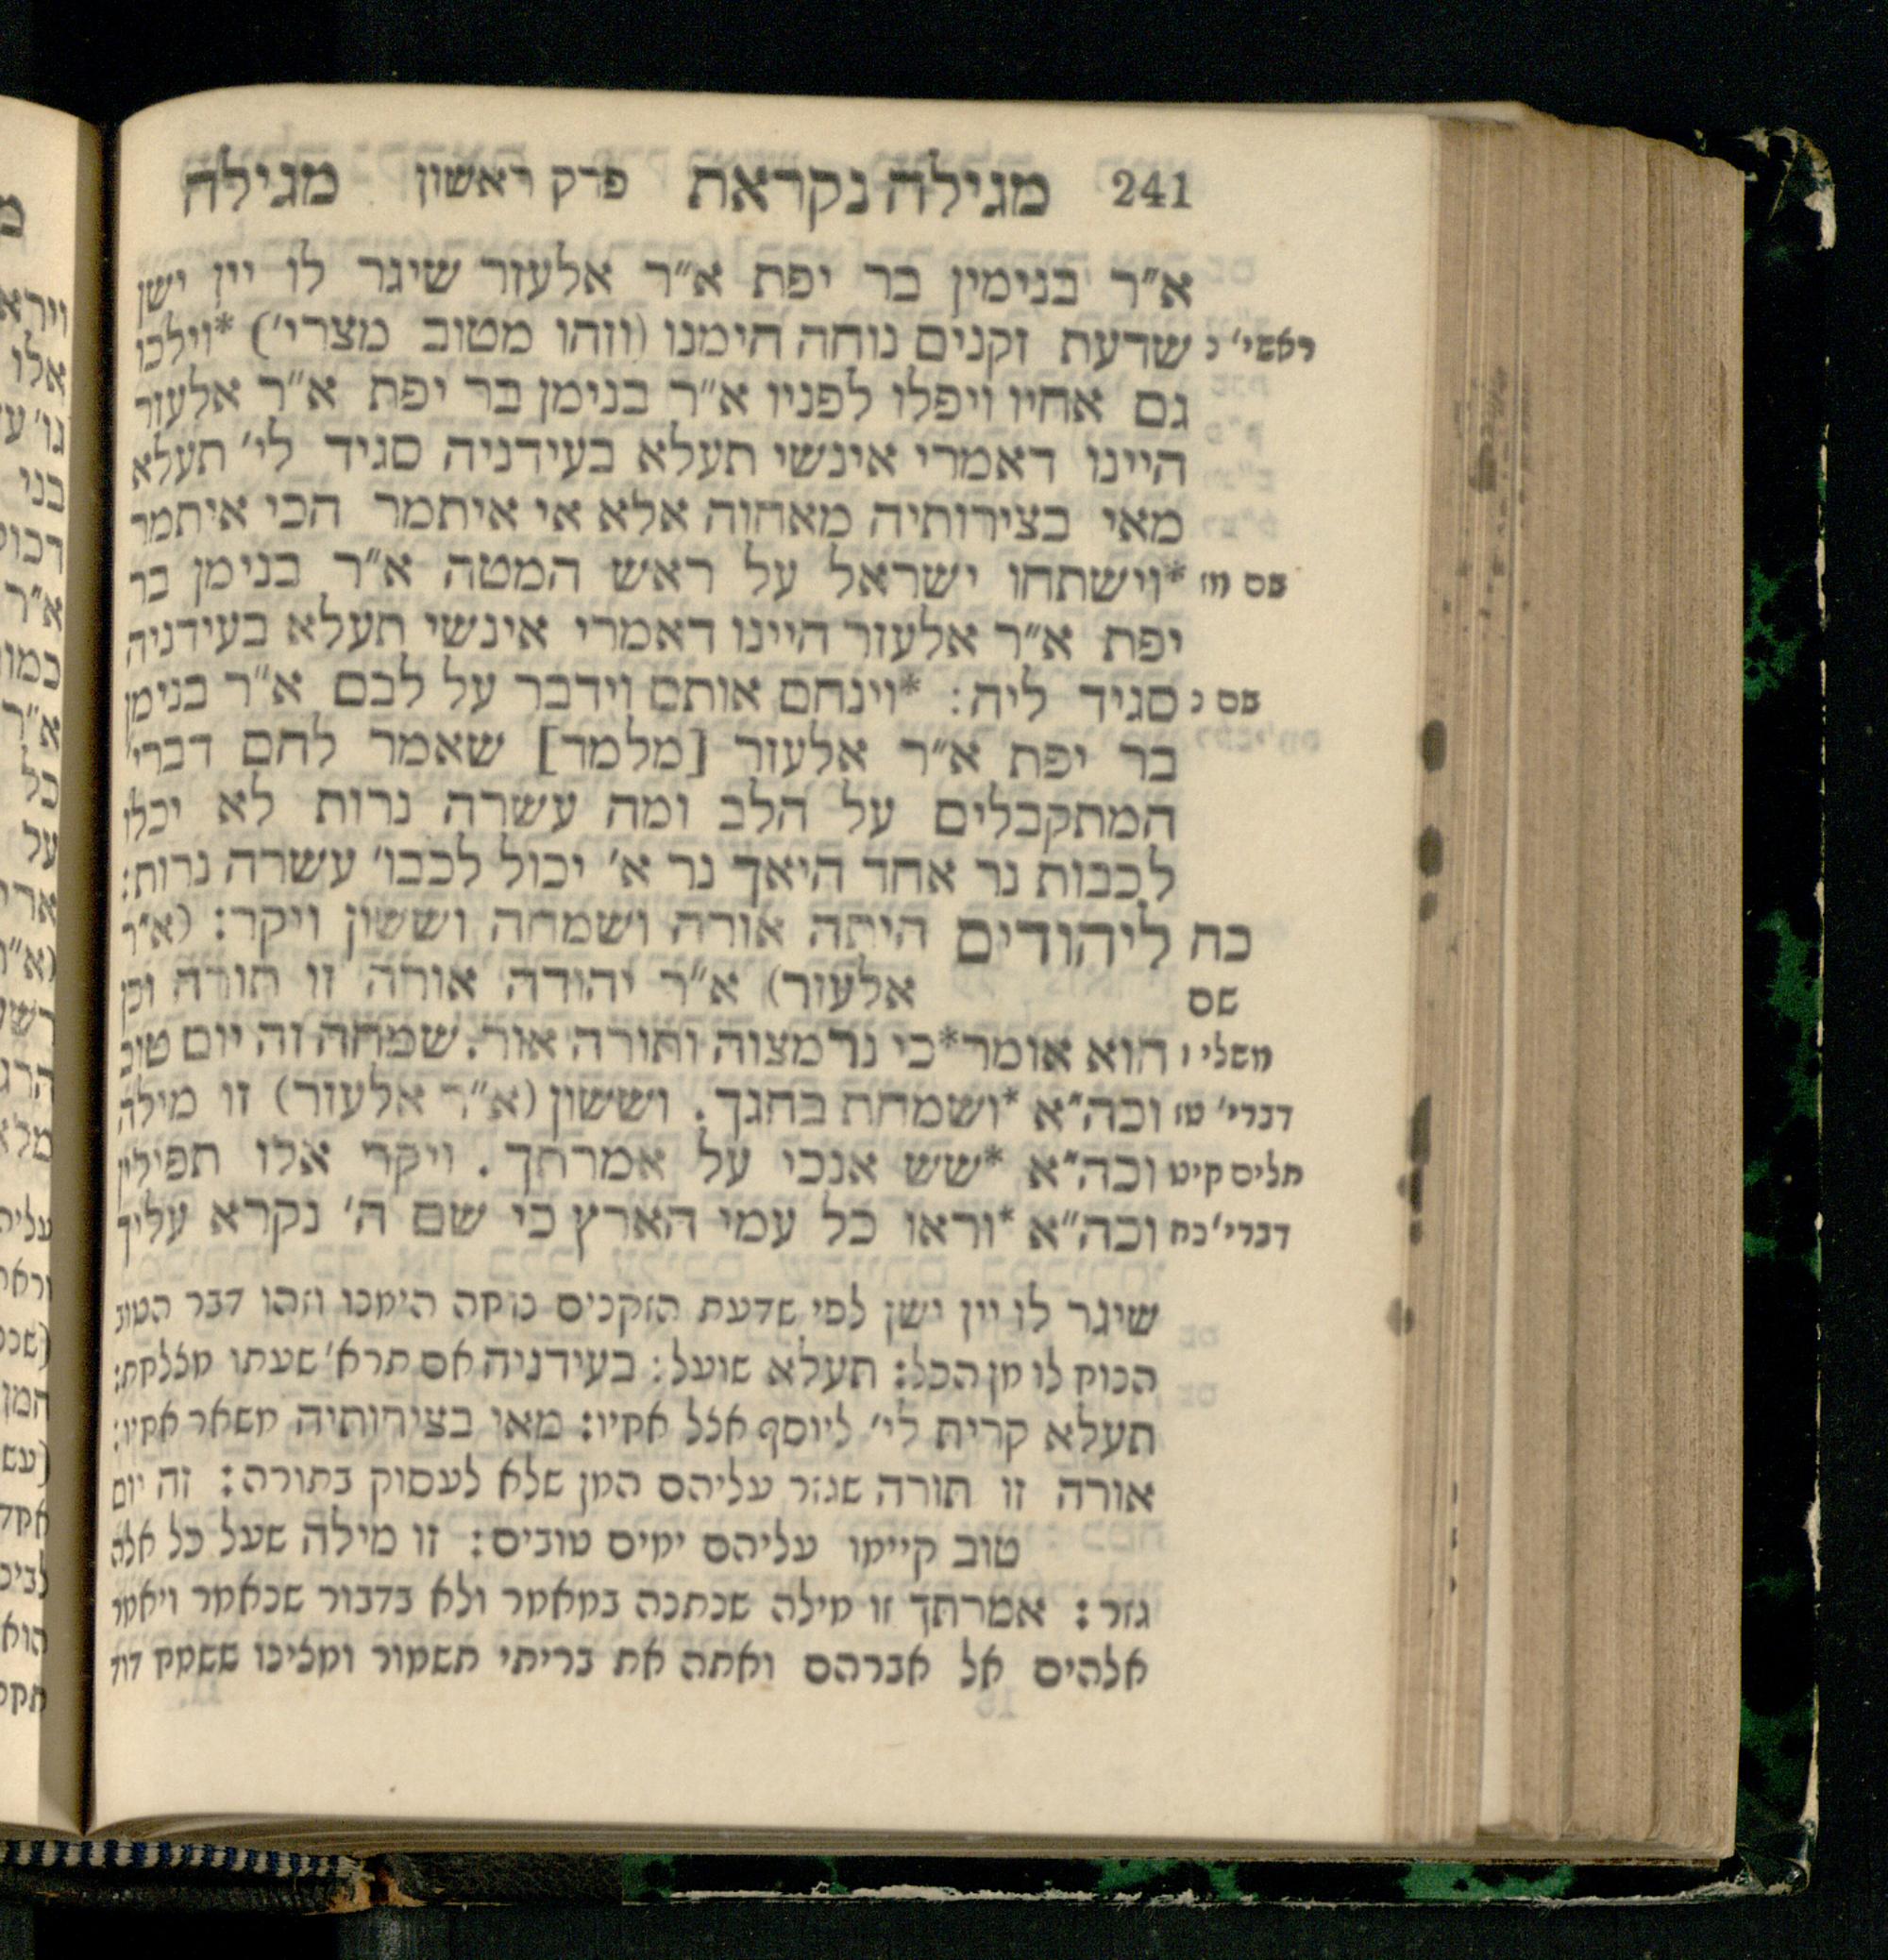 241 מגילה נקראת פרק ראשון מגילה
א״ר בנימין בר יפת א״ר אלעזר שיגר לו יין ישן
ראשי׳ נ שדעת זקנים נוחה הימנו (וזהו מטוב מצרי׳) *וילכו
גם אחיו ויפלו לפניו א״ר בנימן בר יפת א״ר אלעזר
היינו דאמרי אינשי תעלא בעידניה סגיד לי׳ תעלא
מאי בצירותיה מאחוה אלא אי איתמר הכי איתמר
שם מז *וישתחו ישראל על ראש המטה א״ר בנימן בר
יפת א״ר אלעזר היינו דאמרי אינשי תעלא בעידניה
שם נ סגיד ליה: *וינחם אותם וידבר על לבם א״ר בנימן
בר יפת א״ר אלעזר [מלמד] שאמר להם דברי׳
המתקבלים על הלב ומה עשרה נרות לא יכלו
לכבות נר אחד היאך נר א׳ יכול לכבו׳ עשרה נרות:
כח ליהודים היתה אורה ושמחה וששון ויקר: (א״ר
שם אלעזר) א״ר יהודה אורה זו תורה וכן
משלי ו הוא אומר *כי נר מצוה ותורה אור. שמחה זה יום טוב
דברי׳ טז וכה״א *ושמחת בחגך. וששון (א״ר אלעזר) זו מילה
תלים קיט וכה״א *שש אנכי על אמרתך. ויקר אלו תפילין
דברי׳ כח וכה״א *וראו כל עמי הארץ כי שם ה׳ נקרא עליך
שיגר לו יין ישן לפי שדעת הזקנים נוחה הימנו וזהו דבר הטוב
הנוח לו מן הכל: תעלא שועל: בעידניה אם תרא׳ שעתו מצלחת:
תעלא קרית לי׳ ליוסף אצל אחיו: מאי בצירותיה משאר אחיו:
אורה זו תורה שגזר עליהם המן שלא לעסוק בתורה: זה יום
טוב קיימו עליהם ימים טובים: זו מילה שעל כל אלה
גזר: אמרתך זו מילה שנתנה במאמר ולא בדבור שנאמר ויאמר
אלהים אל אברהם ואתה את בריתי תשמור ומלינו ששמח דוד